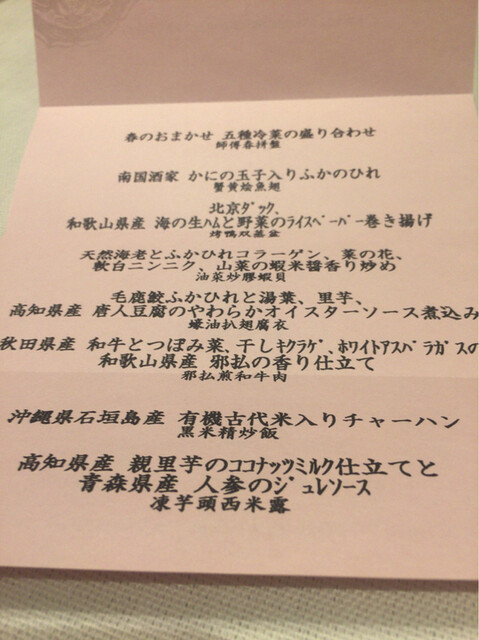 春のおまかせ 五種冷菜の盛り合わせ
師傅春拼盤
南国酒家 かにの玉子入りふかのひれ
蟹黄燴魚翅
北京ダック、
和歌山県産 海の生ハムと野菜のライスペーパー巻き揚げ
烤鴨双蒸盆
天然海老とふかひれコラーゲン、菜の花、
軟白ニンニク、山菜の蝦米醬香り炒め
油菜炒膠蝦貝
毛鹿鮫ふかひれと湯葉、里芋、
高知県産 唐人豆腐のやわらかオイスターソース煮込み
蠔油扒翅腐衣
秋田県産 和牛とつぼみ菜、干しキクラゲ、ホワイトアスパラガスの
和歌山県産 邪払の香り仕立て
邪払煎和牛肉
沖縄県石垣島産 有機古代米入りチャーハン
黒米精炒飯
高知県産 親里芋のココナッツミルク仕立てと
青森県産 人参のジュレソース
凍芋頭西米露